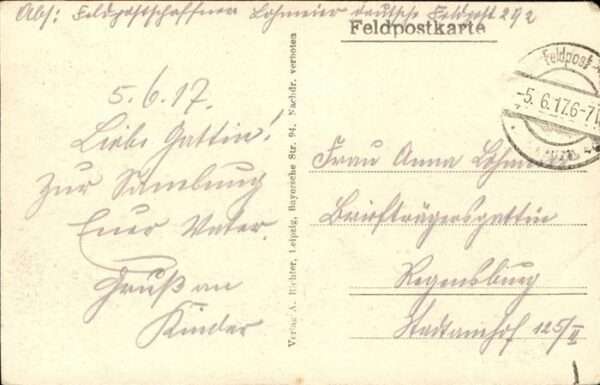 Abs: Feldpostschaffner Lohmeier deutsche Feldpost 292
Feldpostkarte
Feldpost
-5.6.17.6-7
5.6.17.
Liebe Gattin!
Zur Samlung
Euer Vater.
Gruß an
Kinder
Verlag A. Richter, Leipzig, Bayersche Str. 94. Nachdr. verboten
Frau Anna
Briefträgersgattin
Regensburg
Stadtamhof 125/II